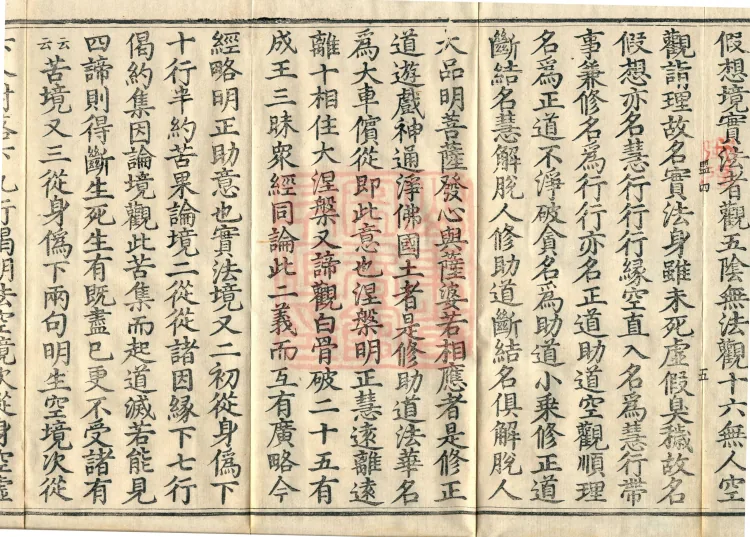 假想境實法者觀五陰無法觀十六無人空
觀詣理故名實法身雖未死虛假臭穢故名
假想亦名慧行行行緣空直入名為慧行帶
事兼修名為行行亦名正道助道空觀順理
名為正道不淨破貪名為助道小乘修正道
斷結名慧解脫人修助道斷結名俱解脫人
次品明菩薩發心與薩婆若相應者是修正
道遊戲神通淨佛國土者是修助道法華名
為大車儐從即此意也涅槃明正慧遠離遠
離十相住大涅槃又諦觀白骨破二十五有
成王三昧眾經同論此二義而互有廣略今
經略明正助意也實法境又二初從身偽下
十行半約苦果論境二從從諸因緣下七行
偈約集因論境觀此苦集而起道滅若能見
四諦則得斷生死生有既盡已更不受諸有
云云苦境又三從身偽下兩句明生空境次從
行偈明法空境次從身空虛
五